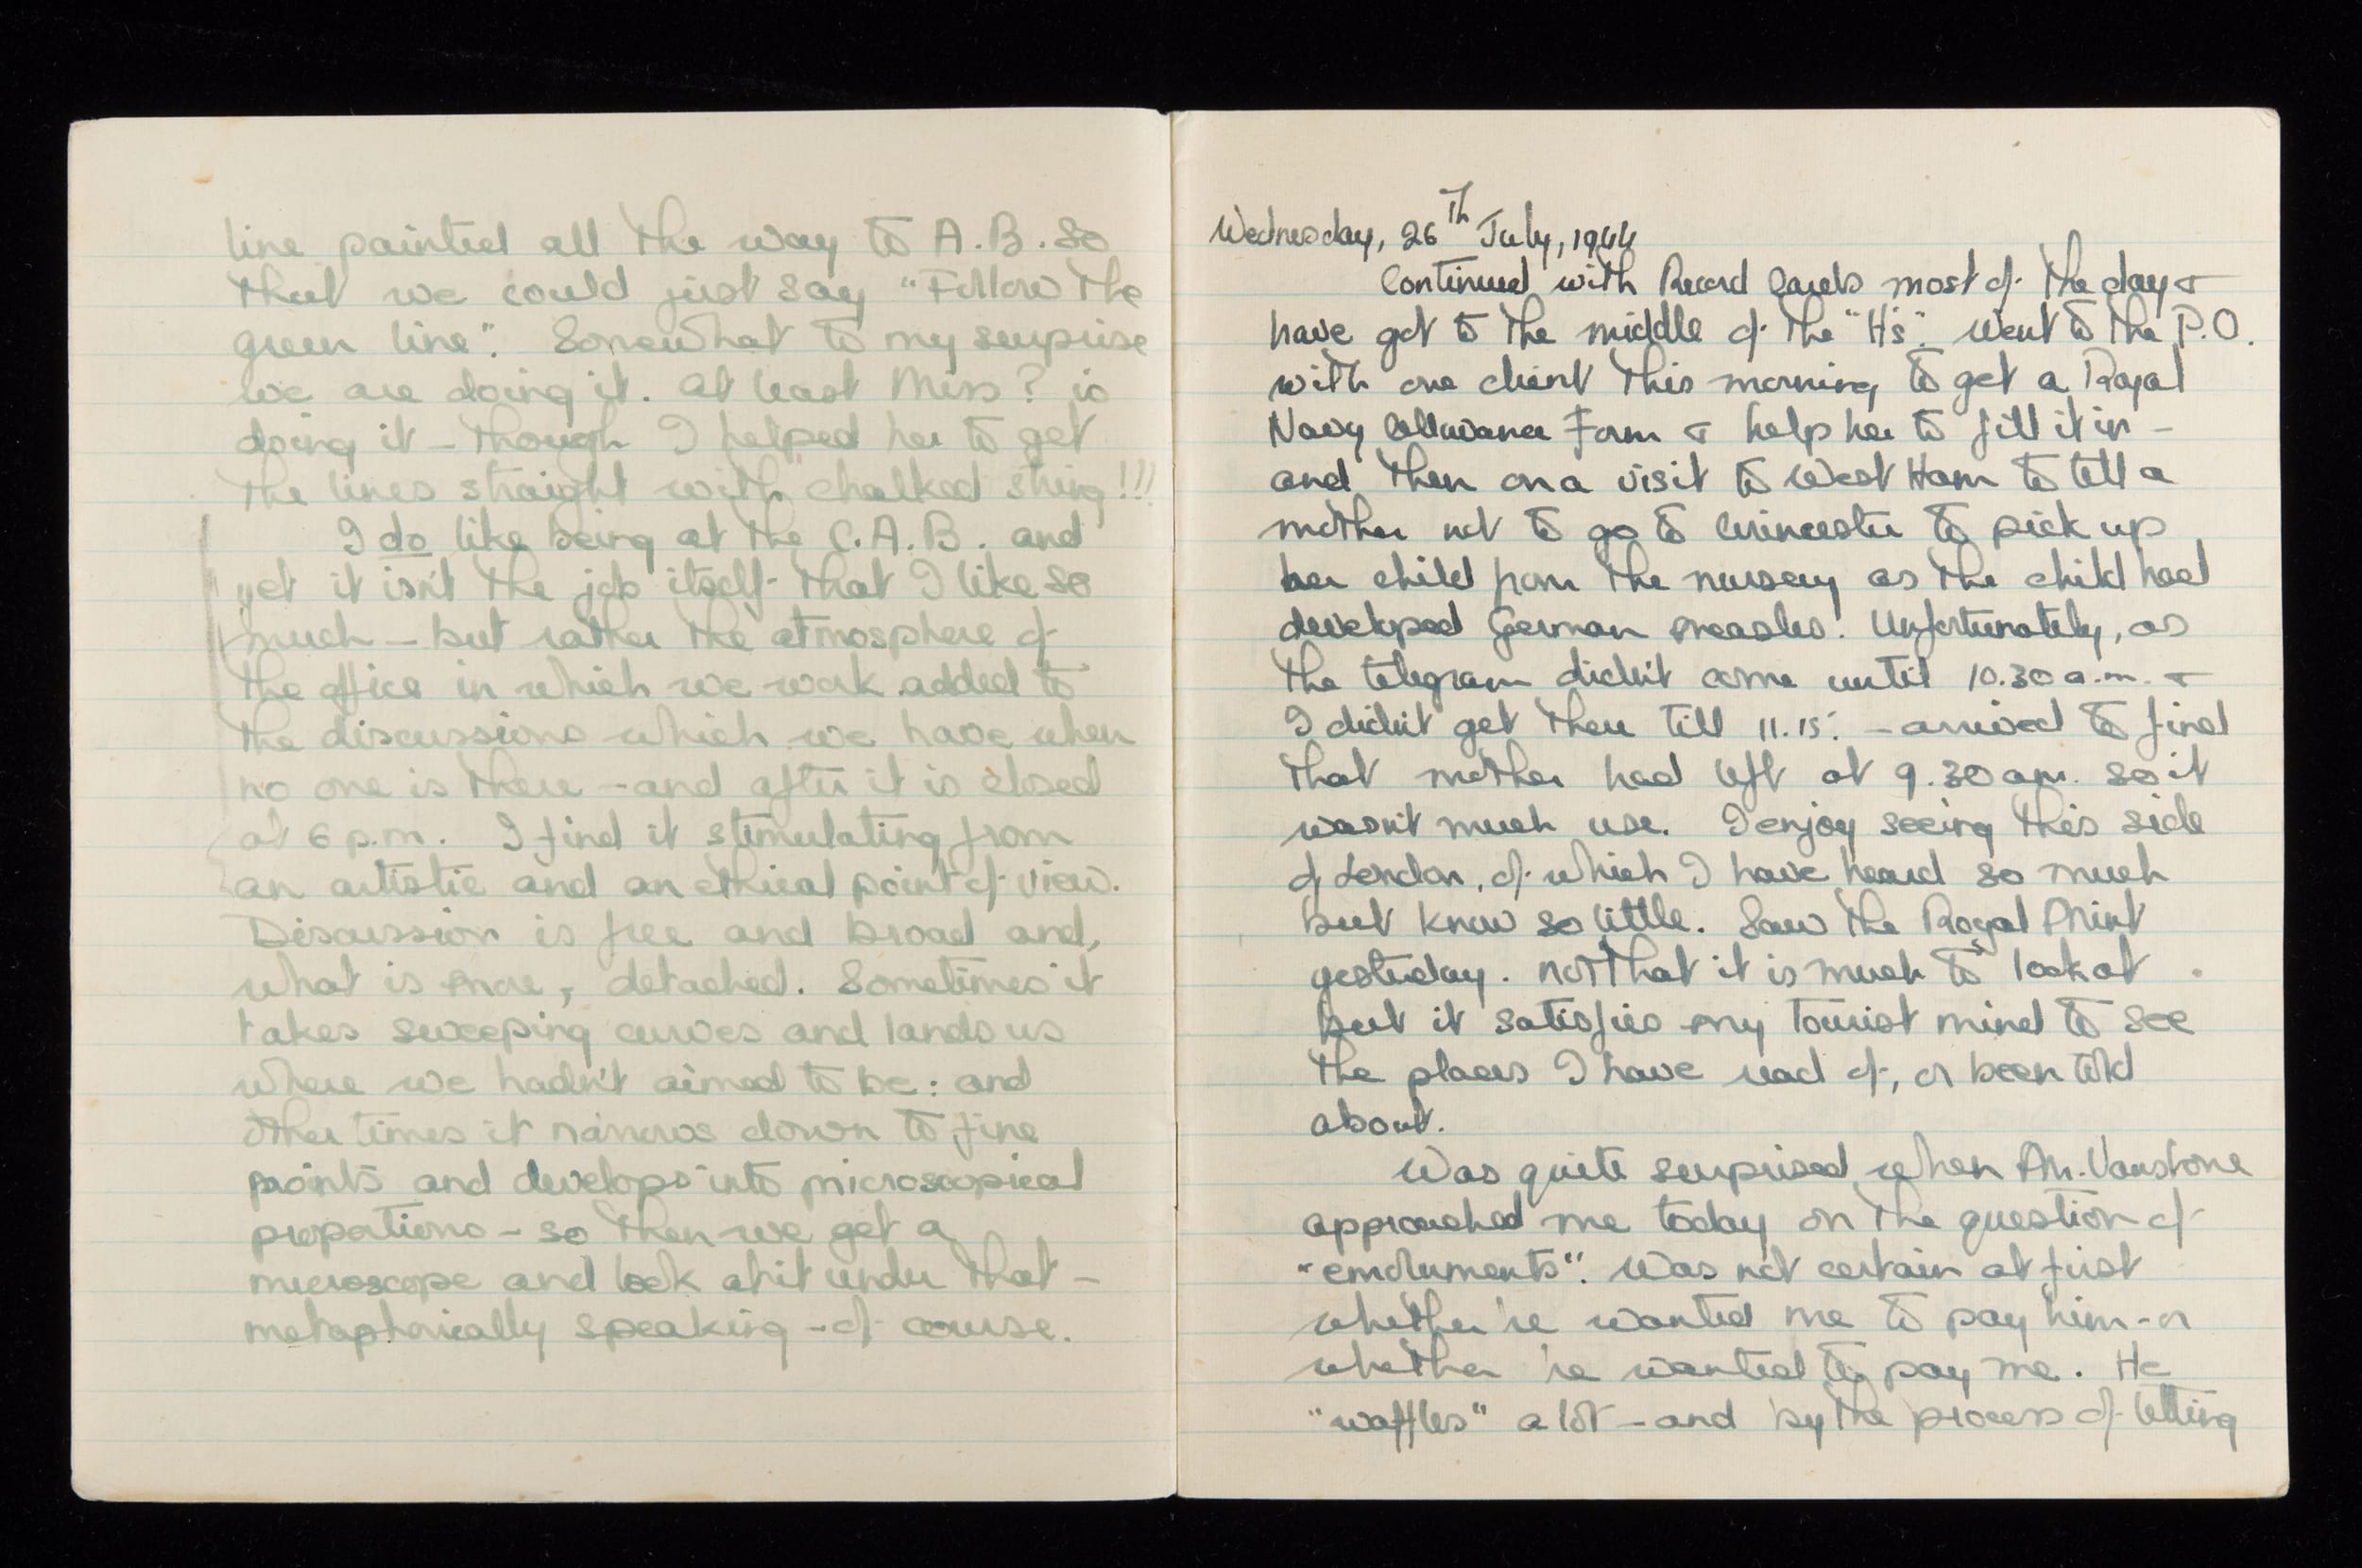 line painted all the way to A.B. so
that we could just say "Follow the
green line". Somewhat to my surprise
we are doing it. At least Miss? is
doing it - though I helped her to get
the lines straight with chalked string!!!
I do like being at the C.A.B. and
yet it isn't the job itself that I like so
much - but rather the atmosphere of
the office in which we work added to
the discussions which we have when
no one is there - and after it is closed
at 6 p.m. I find it stimulating from
an artistic and an ethical point of view.
Discussion is free and broad and,
what is more, detached. Sometimes it
takes sweeping curves and lands us
where we hadn't aimed to be: and
other times it narrows down to fine
points and develops into microscopical
proportions - so then we get a
microscope and look at it under that -
metaphorically speaking - of course.
Wednesday, 26th July, 1944
Continued with Record Cards most of the day &
have got to the middle of the "H's". Went to the P.O.
with one client this morning to get a Royal
Navy Allowance Form & help her to fill it in -
and then on a visit to West Ham to tell a
mother not to go to to pick up
her child from the nursery as the child had
developed German measles. Unfortunately, as
the telegram didn't come until 10.30 a.m. &
I didn't get there till 11.15: - arrived to find
that mother had left at 9.30 am. so it
wasn't much use. I enjoy seeing this side
of London, of which I have heard so much
but know so little. Saw the Royal Mint
yesterday. Not that it is much to look at
but it satisfies my tourist mind to see
the places I have read of, or been told
about.
Was quite surprised when Mr. Vanstone
approached me today on the question of
"emoluments". Was not certain at first
whether he wanted me to pay him - or
whether he wanted to pay me. He
"waffles" a lot - and by the process of letting